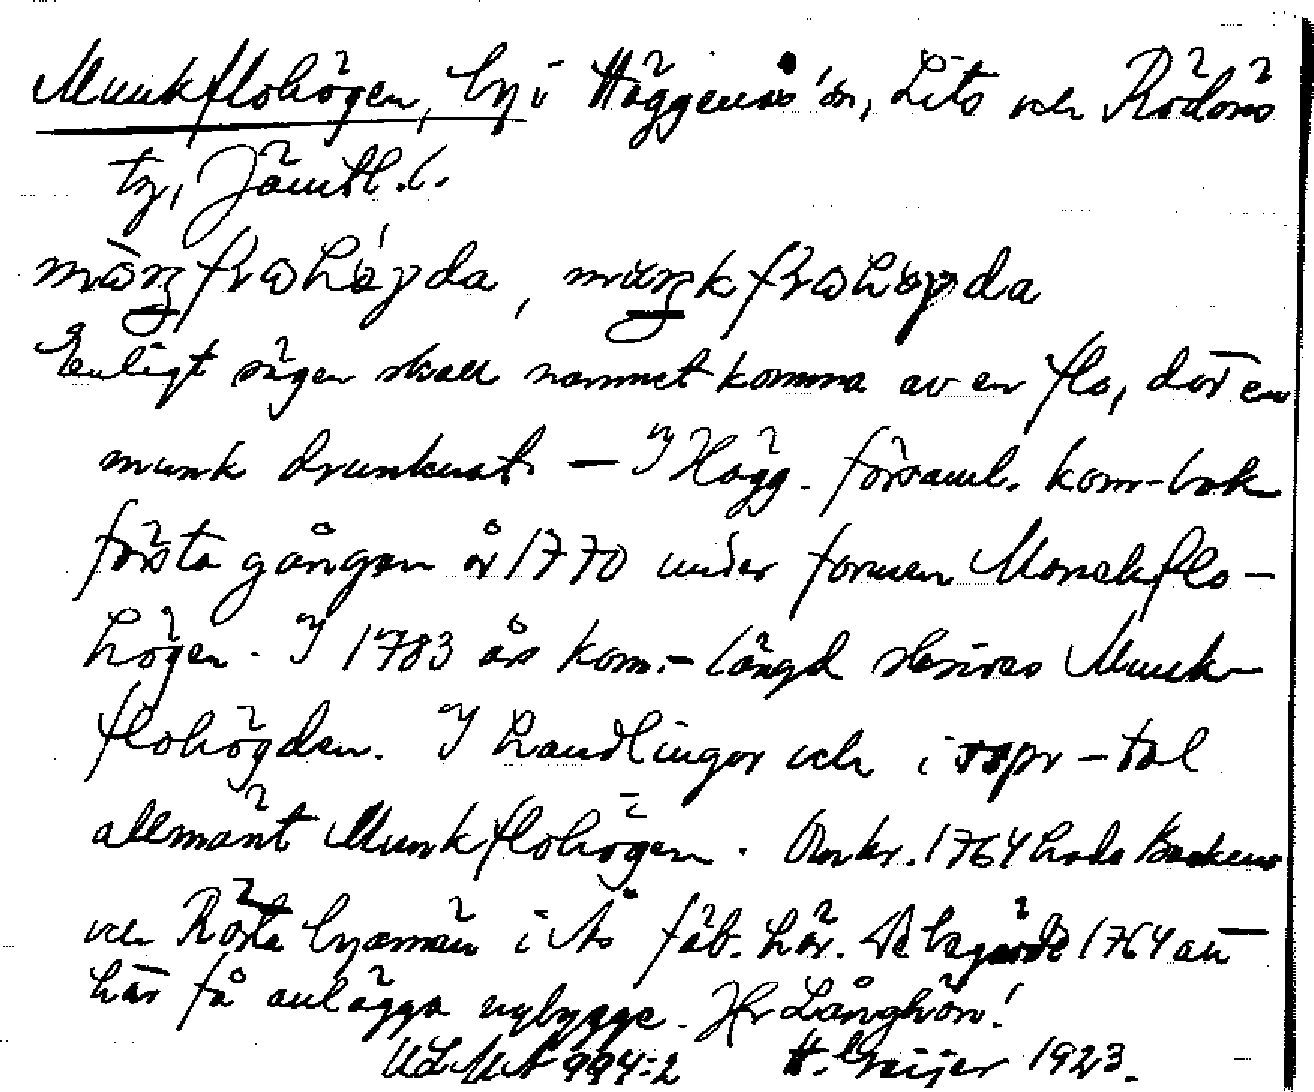 Munkflohögen, by i Häggenås sn, Lits och Rödöns
tg, Jämtl. l.
Enligt sägen skall namnet komma av en flo, där en
munk drunknat. — I Hägg. församl. kom-bok
första gången år 1770 under formen Monckflo-
högen. I 1783 års kom.-längd skrives Munk-
flohögden. I handlingar och i rspr-tal
allmänt Munkflohögen. Omkr. 1764 hade Backens
och Rörta byamän i Ås fäb. här. De begärde 1764 att
här få anlägga nybygge. Jfr Långhön!
ULMA 994:2 H. Geijer 1923.